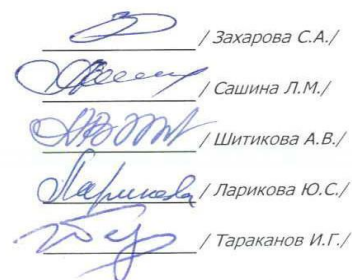 / Захарова С.А./
/ Сашина Л.М./
/ Шитикова А.В./
Ларикова / Ларикова Ю.С./
/ Тараканов И.Г./